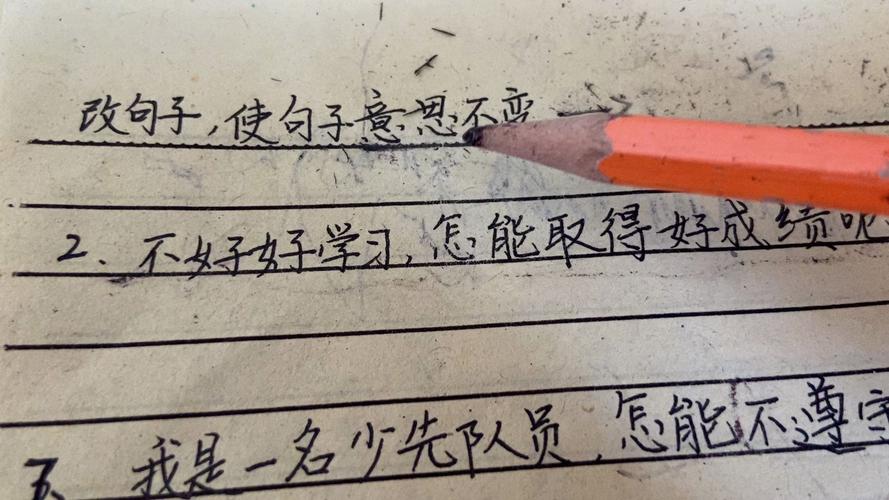 改句子,使句子意思不变
2. 不好好学习,怎能取得好成绩呢
3、我是一名少先队员,怎能不遵守